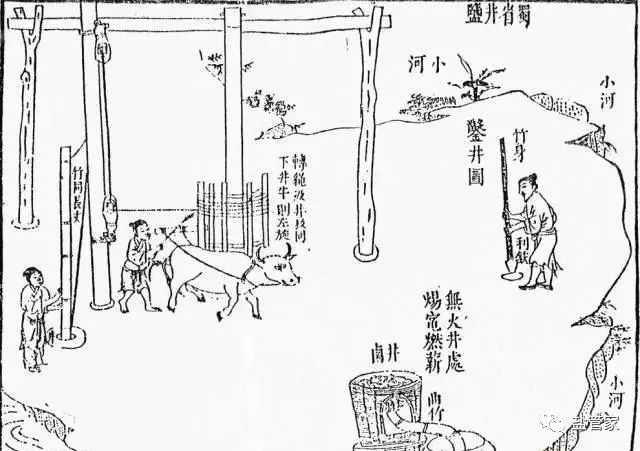 蜀省井鹽
小河
小河
鑿井圖
竹身
利鉄
轉繩汲井同
下井牛則左旋
竹筒長丈
無火井處
煬竈燃薪
井鹵
曲竹
小河
盐管家